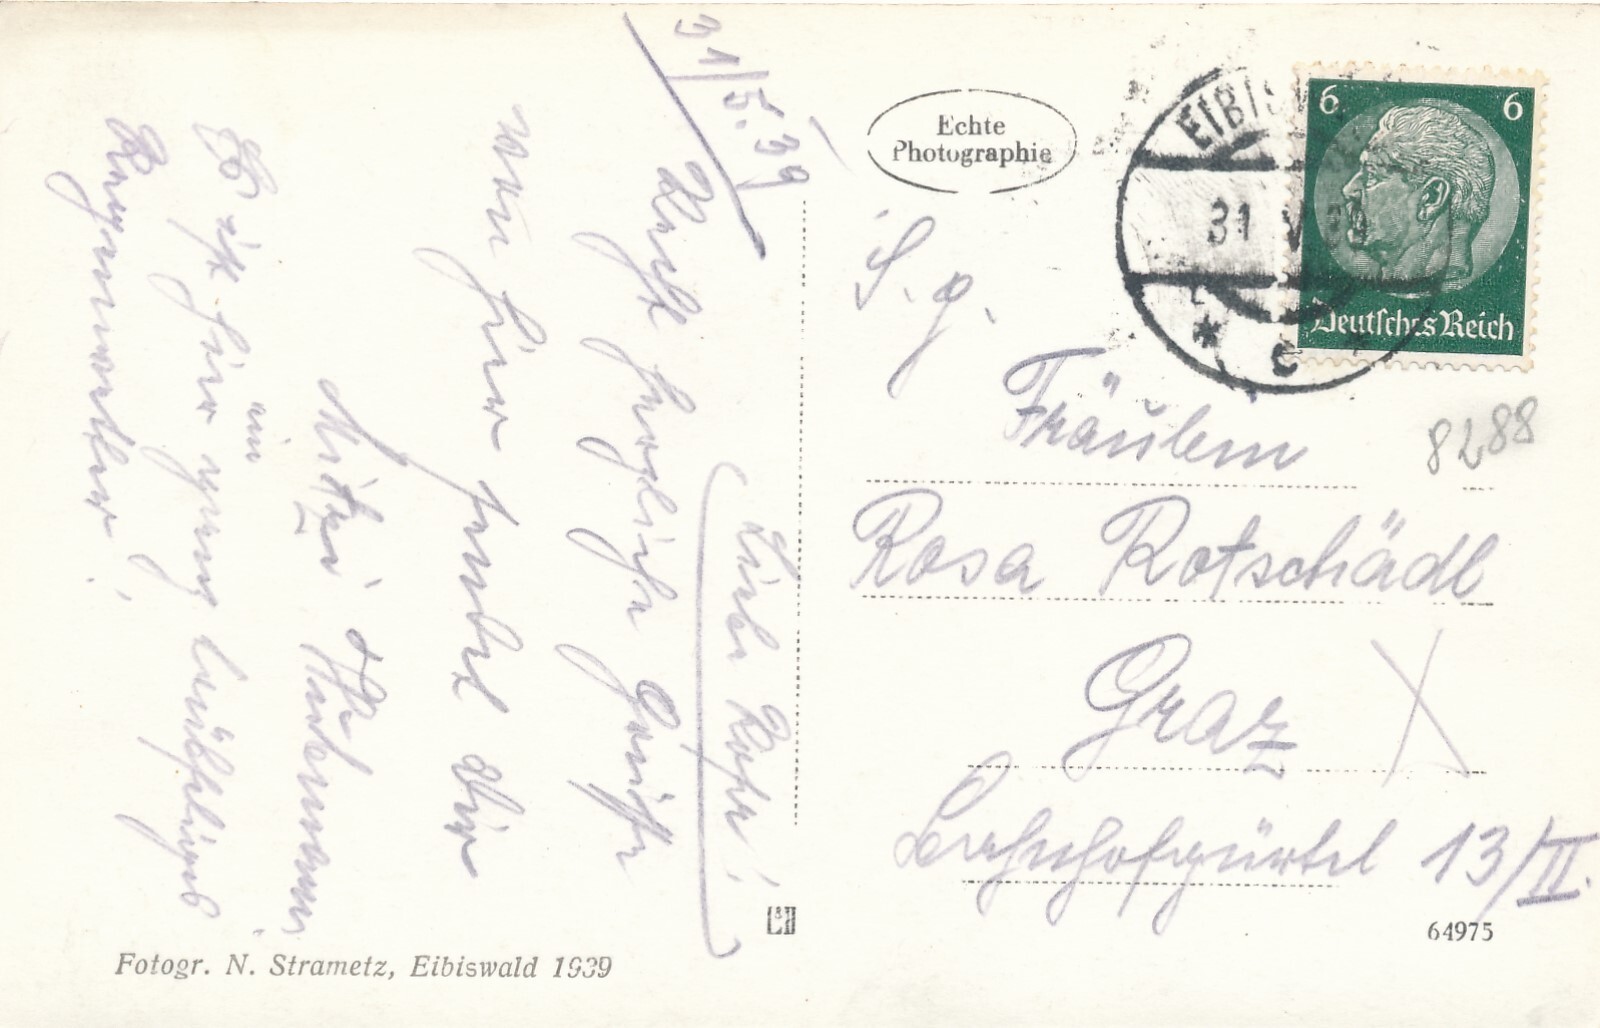 31/5.39
Liebe Rosa!
Recht herzliche Grüße
von hier sendet Dir
Mitzi
Es ist hier ganz
ein
Regenwetter!
Fotogr. N. Strametz, Eibiswald 1939
Echte
Photographie
EIBISW
31 V 39
6 6
Deutsches Reich
S. g.
Fräulein
8288
Rosa Rotschädl
Graz
Bahnhofgürtel 13/II.
64975